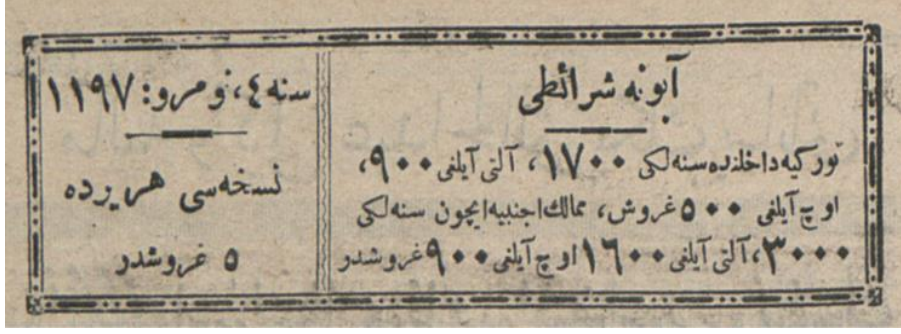 آبونه شرائطی
تورکیه داخلنده سنه لکی ١٧٠٠، آلتی آیلغی ٩٠٠،
اوچ آیلغی ٥٠٠ غروش، ممالك اجنبیه ایچون سنه لکی
٣٠٠٠، آلتی آیلغی ١٦٠٠ اوچ آیلغی ٩٠٠ غروشدر
سنه ٤، نومرو: ١١٩٧
نسخه سی هر یرده
٥ غروشدر